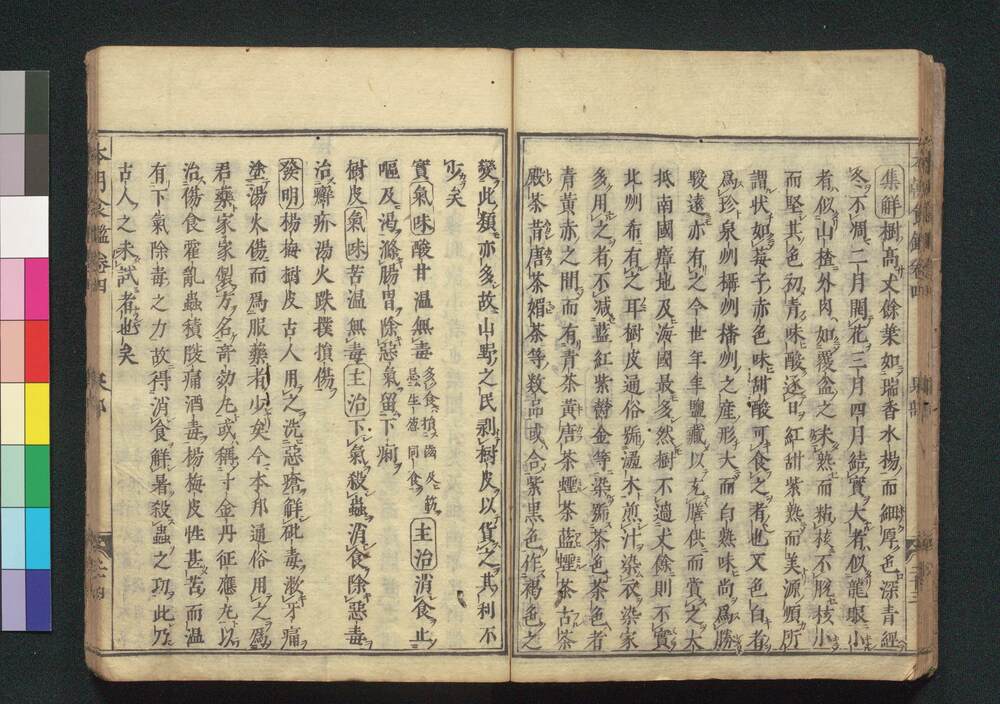 集解樹高丈餘葉如瑞香水楊而細厚色深青經
冬不凋二月開花三月四月結實大者似龍眼小
者似山楂外肉如覆盆之未熟而粘核不脱核小
而堅其色初青味酸逐日紅甜紫熟而美源順所
謂状如莓子赤色味甜酸可食之者也又色白者
爲珍泉州攝州播州之産形大而白熟味尚爲勝
駿遠亦有之今世年年鹽藏以充膳供而賞之大
抵南國瘴地及海國最多然樹不過丈餘則不實
北州希有之耳樹皮通俗號澁木煎汁染衣染家
多用之者不減藍紅紫欝金等染號茶色茶色者
青黄赤之間而有青茶黄唐茶蝗茶藍蝗茶古茶
殿茶昔唐茶媚茶等数品或合紫黒色作褐色之
變此類亦多故山野之民剥樹皮以貨之其利不
少矣
實氣味酸甘温無毒多食損齒及筋忌生葱同食主治消食止
嘔及渇滌腸胃除惡氣留下痢
樹皮氣味苦温無毒主治下氣殺蟲消食除惡毒
治癬疥湯火跌撲損傷
發明楊梅樹皮古人用之洗惡瘡解砒毒漱牙痛
塗湯火傷而爲服藥者少矣今本邦通俗用之爲
君藥家家製方名奇効丸或稱寸金丹征應丸以
治傷食霍亂蟲積腹痛酒毒楊梅皮性甚苦而温
有下氣除毒之力故得消食解暑殺蟲之功此乃
古人之未試者也矣